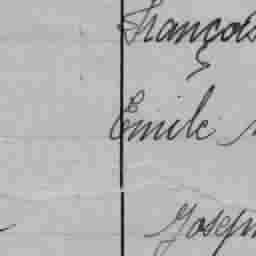 François
Emile
Joseph